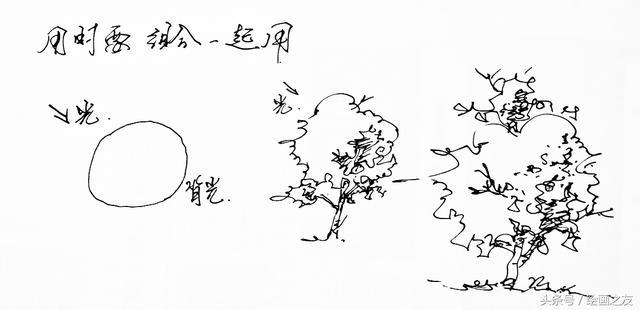 用时要组合一起用
光.
光.
背光.
头条号／绘画之友